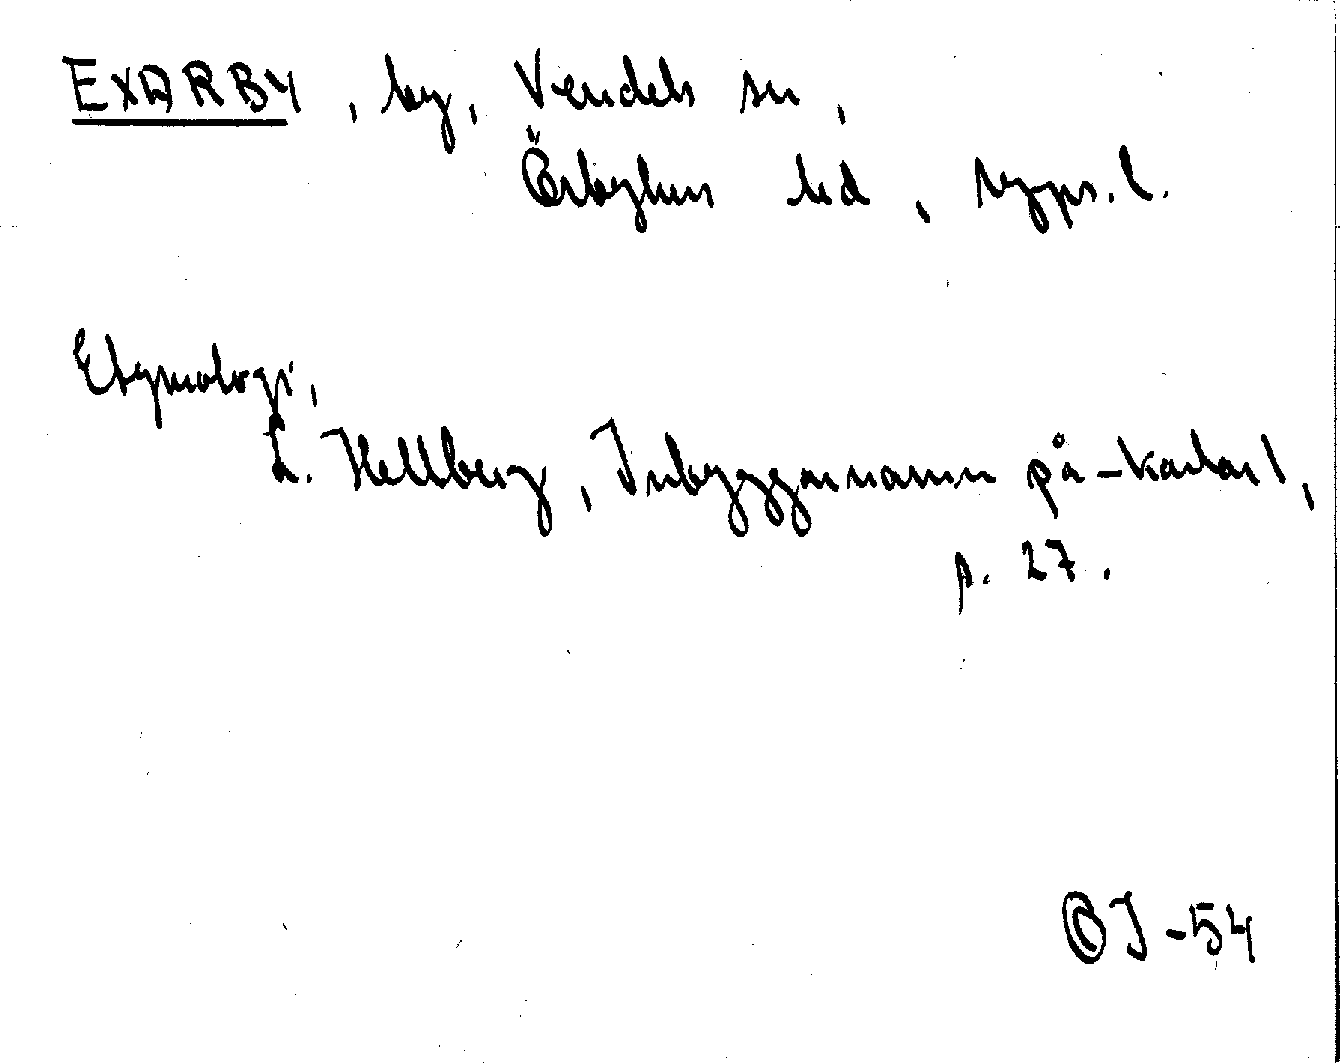 EXARBY, by, Vendels sn,
Örbyhus hd, Upps. l.
Etymologi,
L. Hellberg, Inbyggarnamn på -karlar 1,
p. 27.
OJ-54